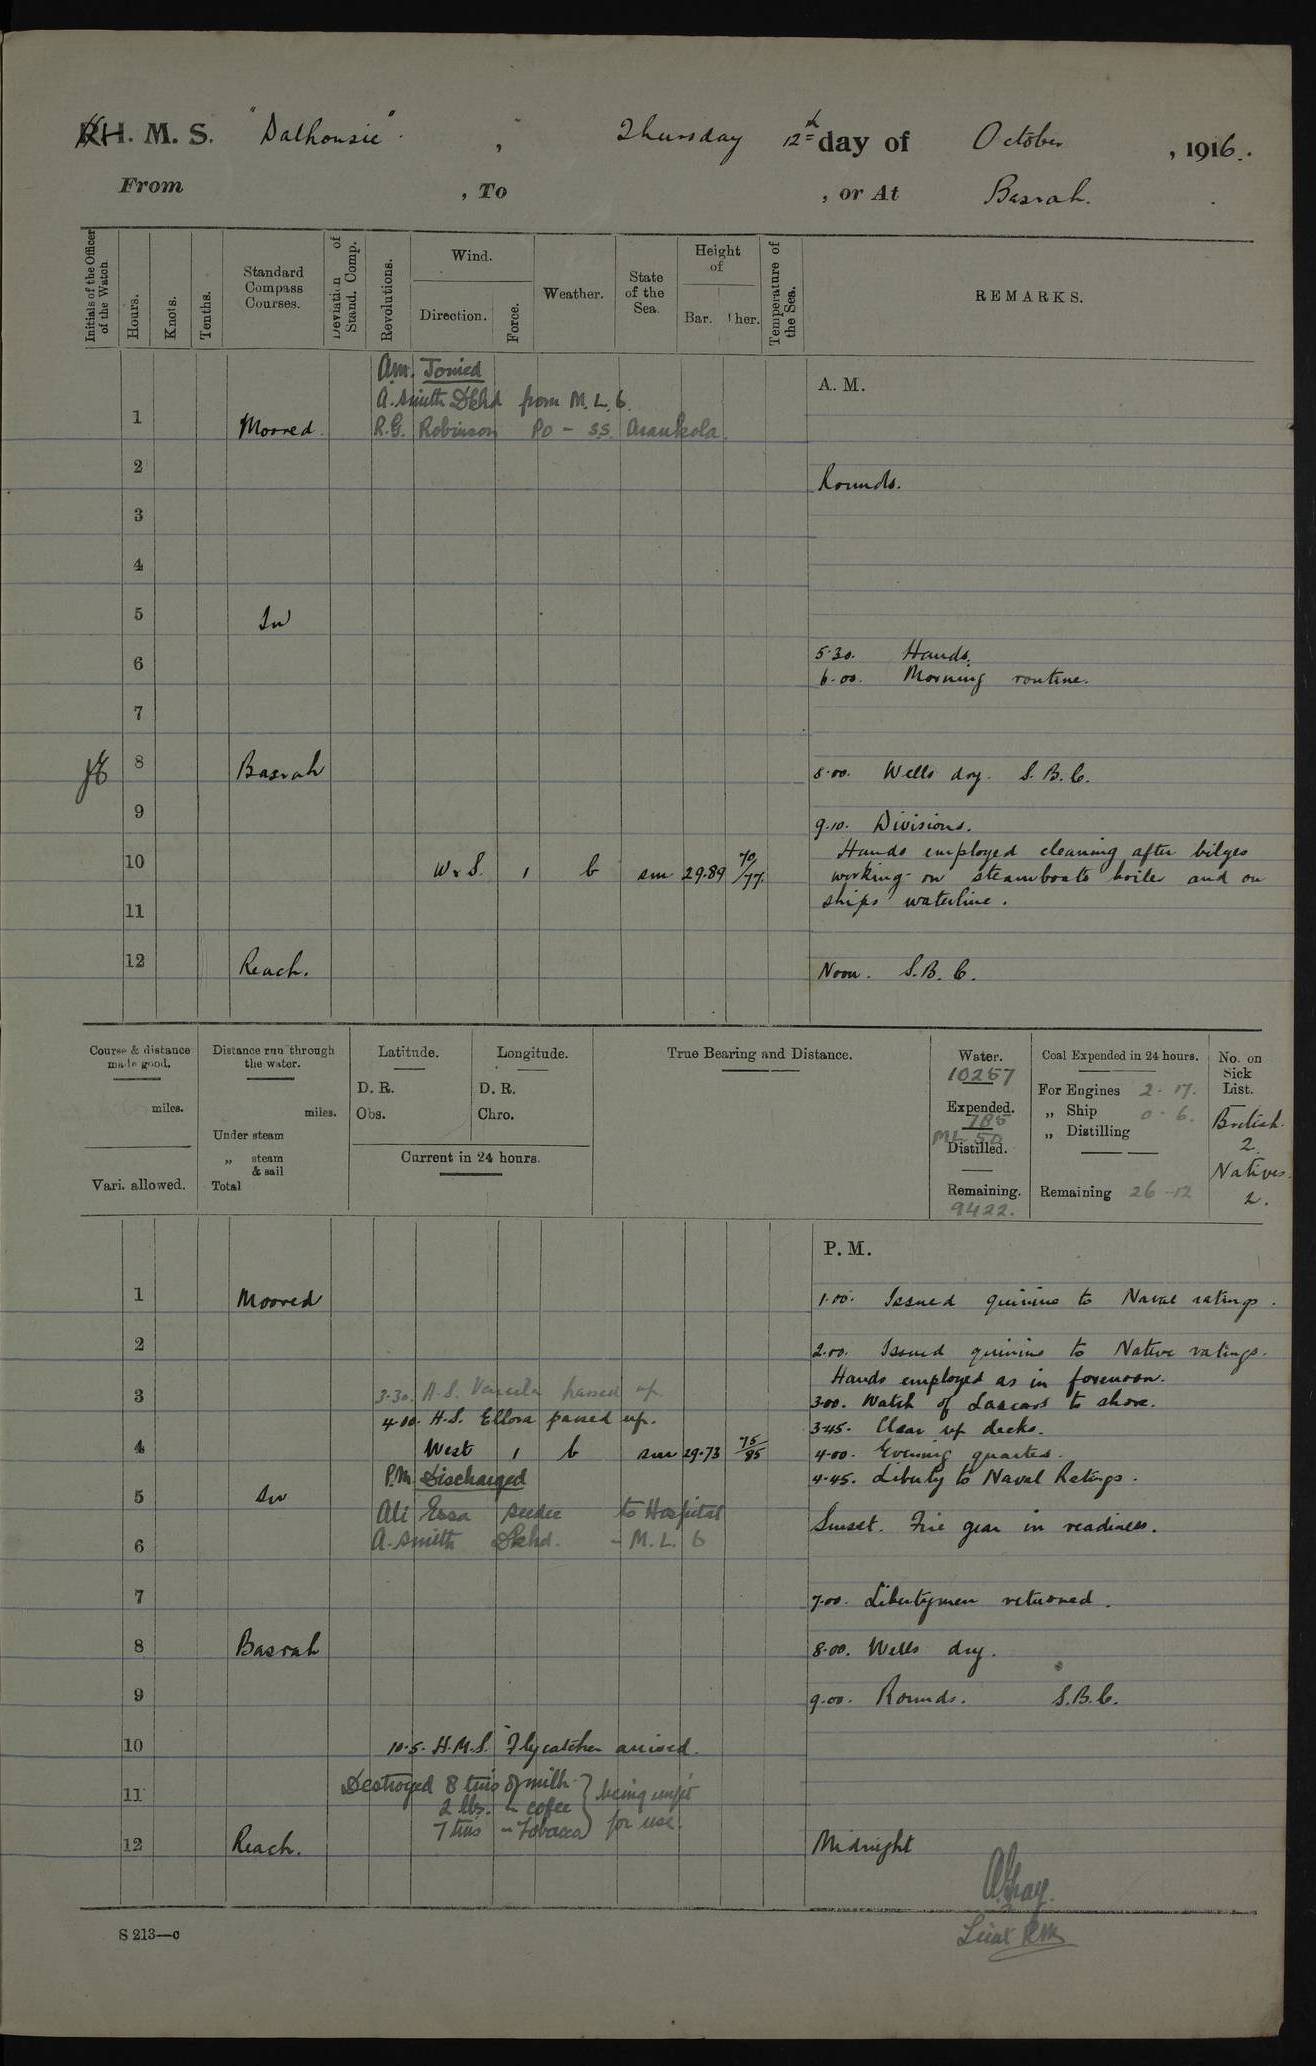 H. M. S. "Dalhousie" , Thursday 12th day of October , 1916.
From , To , or At Basrah.
Initials of the Officer of the Watch.
Hours.
Knots.
Tenths.
Standard Compass Courses.
Deviation of Stand. Comp.
Revolutions.
Wind.
Direction.
Force.
Weather.
State of the Sea.
Height of
Bar. Ther.
Temperature of the Sea.
REMARKS.
Am. Joined
A. M.
A. Smith Dkhd from M. L. 6.
1 Moored. R.G. Robinson PO - S.S. Arankola.
2 Rounds.
3
4
5 In
5.30. Hands.
6 6.00. Morning routine.
7
8 Basrah 8.00. Wells dry. S. B. C.
9 9.10. Divisions.
Hands employed cleaning after bilges
10 W x S. 1 b sm 29.89 70/77. working on steamboats boiler and on
11 ships waterline.
12 Reach. Noon. S. B. C.
Course & distance made good.
miles.
Vari. allowed.
Distance run through the water.
miles.
Under steam
„ steam & sail
Total
Latitude.
D. R.
Obs.
Longitude.
D. R.
Chro.
Current in 24 hours.
True Bearing and Distance.
Water.
10257
Expended.
785
ML 50
Distilled.
Remaining.
9422.
Coal Expended in 24 hours.
For Engines 2 - 17.
„ Ship 0 - 6.
„ Distilling
Remaining 26 - 12
No. on Sick List.
British.
2.
Natives.
2.
P. M.
1 Moored 1.00. Issued quinine to Naval ratings.
2 2.00. Issued quinine to Native ratings.
Hands employed as in forenoon.
3 3.30. passed up. 3.00. Watch of Lascars to shore.
4.00. H.S. Ellora passed up. 3.45. Clear up decks.
4 West 1 b sm 29.73 75/85 4.00. Evening quarters.
P.M. Discharged 4.45. Liberty to Naval Ratings.
5 In
Ali Essa seedee to Hospital Sunset. Fire gear in readiness.
6 A. Smith Dkhd. - M. L. 6
7 7.00. Libertymen returned.
8 Basrah 8.00. Wells dry.
9 9.00. Rounds. S.B.C.
10 10.5. H.M.S. Flycatcher arrived.
Destroyed 8 tins of milk } being unfit
11 2 lbs. " cofee
7 tins " Tobacco } for use.
12 Reach. Midnight
Lieut RIM
S 213—c